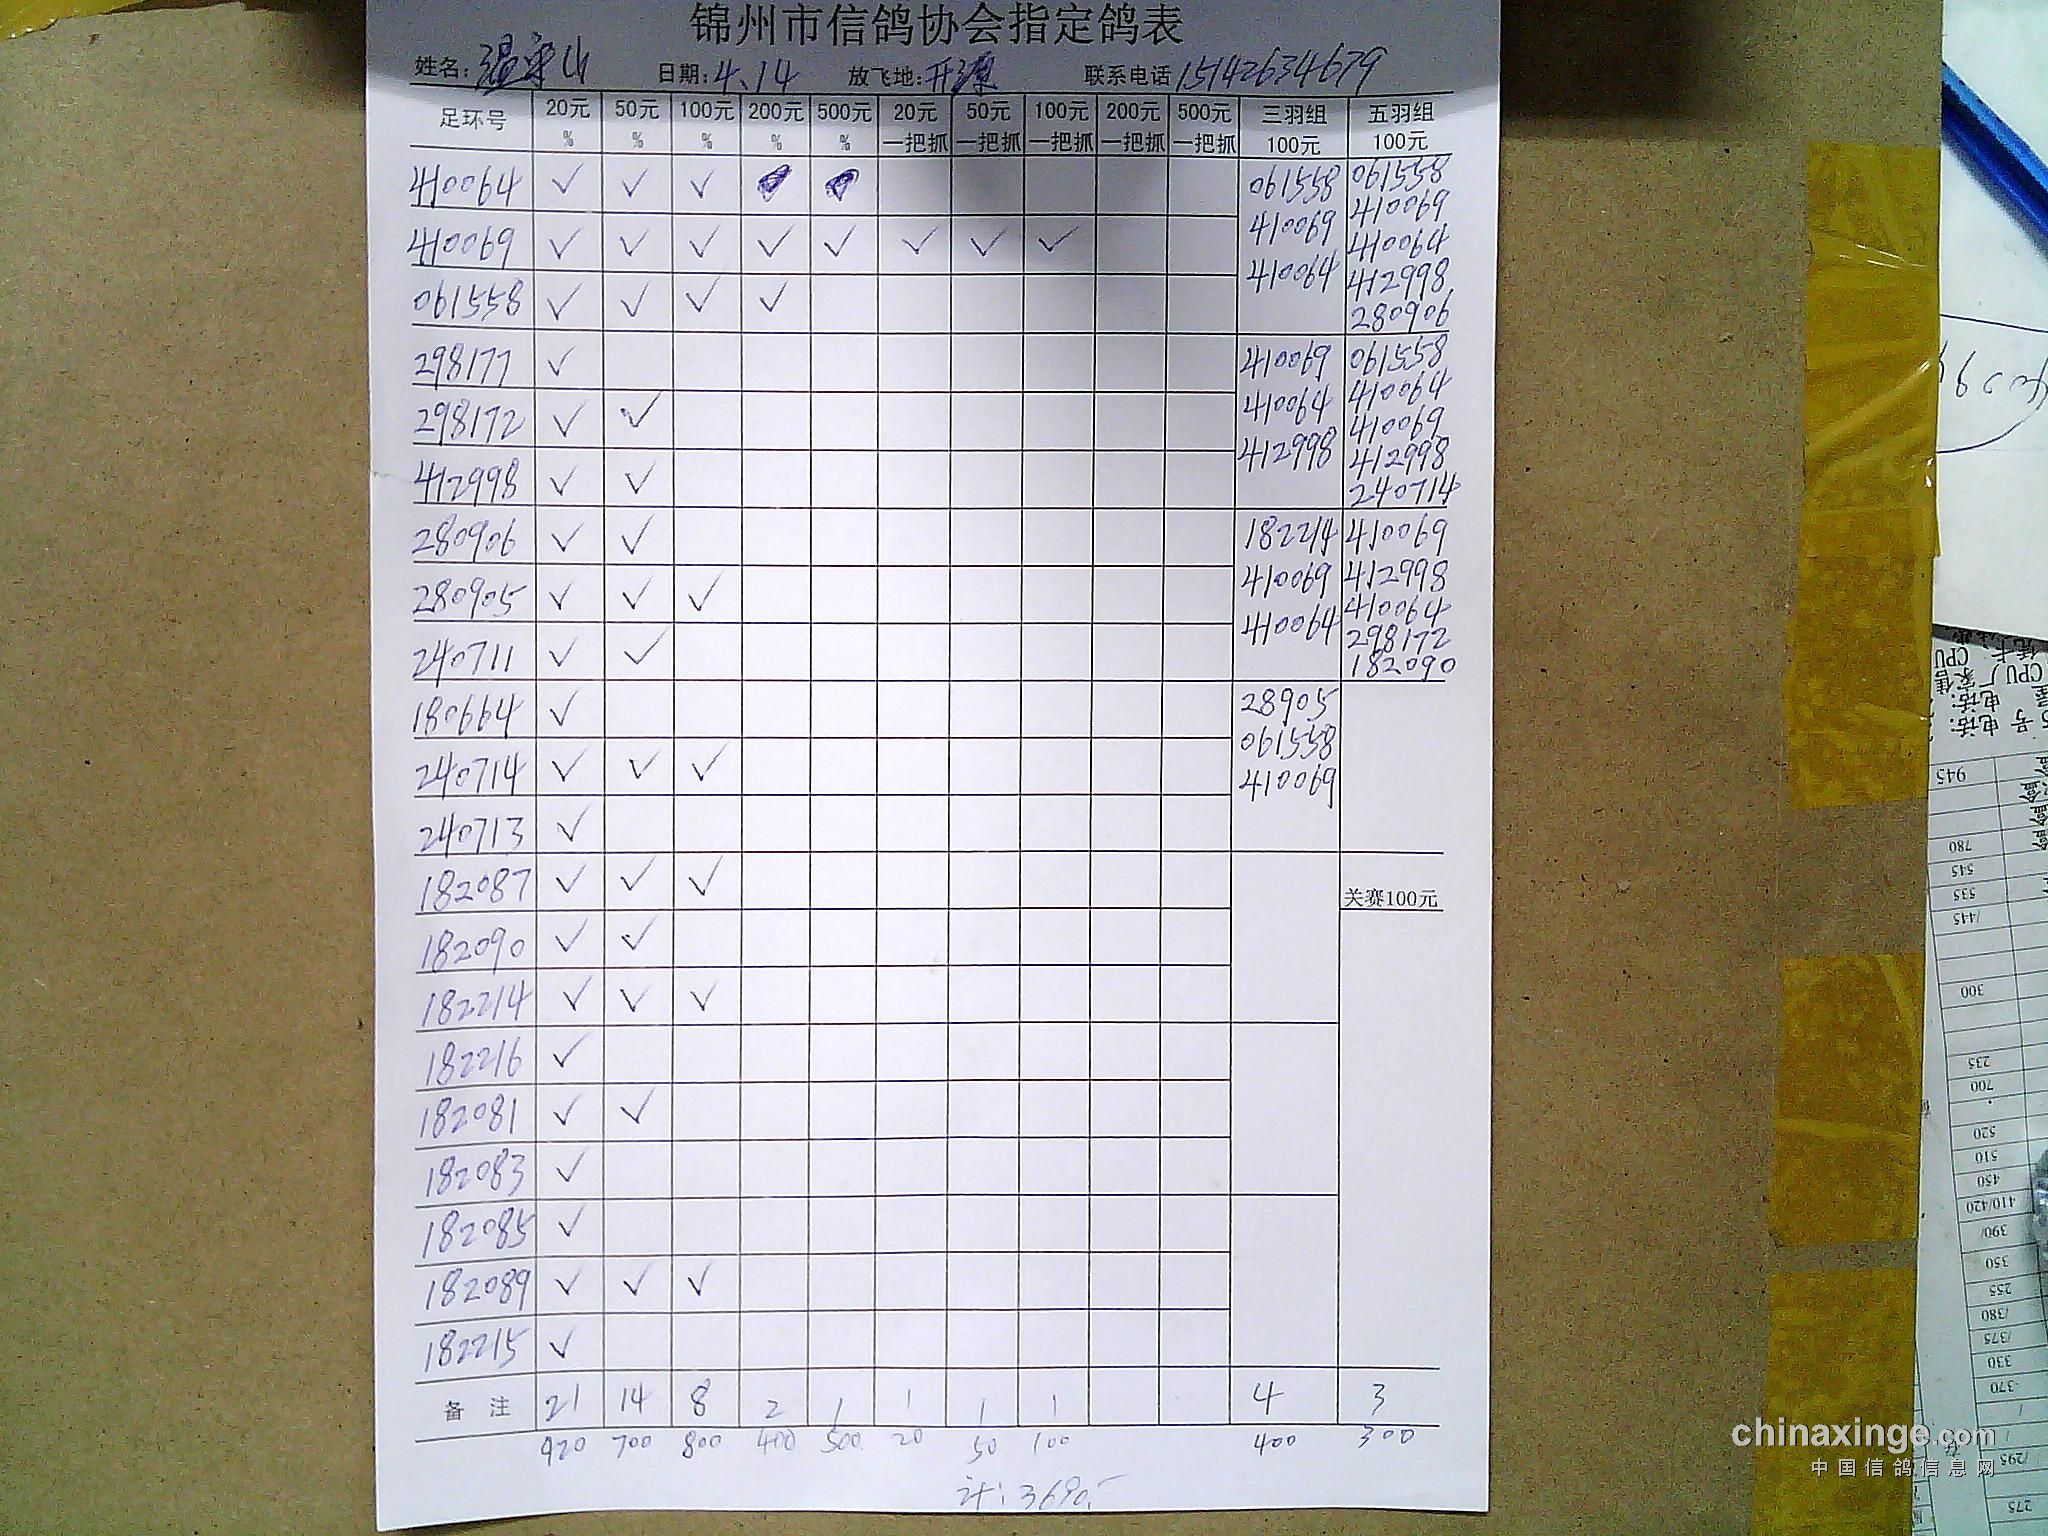 锦州市信鸽协会指定鸽表
姓名: 温守山 日期: 4.14 放飞地: 开源 联系电话 15142634679
足环号 20元% 50元% 100元% 200元% 500元% 20元一把抓 50元一把抓 100元一把抓 200元一把抓 500元一把抓 三羽组100元 五羽组100元
410064 ✓ ✓ ✓
410069 ✓ ✓ ✓ ✓ ✓ ✓ ✓ ✓
061558 ✓ ✓ ✓ ✓
298177 ✓
298172 ✓ ✓
412998 ✓ ✓
280906 ✓ ✓
280905 ✓ ✓ ✓
240711 ✓ ✓
180664 ✓
240714 ✓ ✓ ✓
240713 ✓
182087 ✓ ✓ ✓
182090 ✓ ✓
182214 ✓ ✓ ✓
182216 ✓
182081 ✓ ✓
182083 ✓
182085 ✓
182089 ✓ ✓ ✓
182215 ✓
061558
410069
410064
410069
410064
412998
182214
410069
410064
28905
061558
410069
061558
410069
410064
412998
280906
061558
410064
410069
412998
240714
410069
412998
410064
298172
182090
关赛100元
备注 21 14 8 2 1 1 1 1 4 3
420 700 800 400 500 20 50 100 400 300
计: 3690.-
945
780
545
535
/445
300
235
700
520
510
450
410/420
390/
350
255
/380
/375
330
370
/295
275
chinaxinge.com
中国信鸽信息网